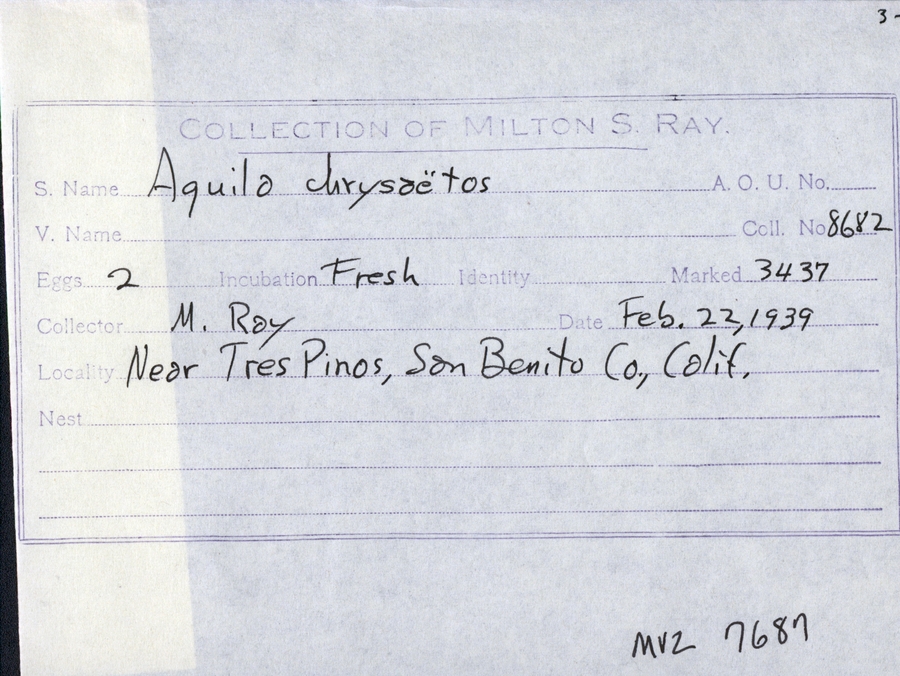 3-
COLLECTION OF MILTON S. RAY.
S. Name Aquila chrysaëtos A. O. U. No.
V. Name Coll. No 8682
Eggs 2 Incubation Fresh Identity Marked 3437
Collector M. Ray Date Feb. 22, 1939
Locality Near Tres Pinos, San Benito Co., Calif.
Nest
MVZ 7687